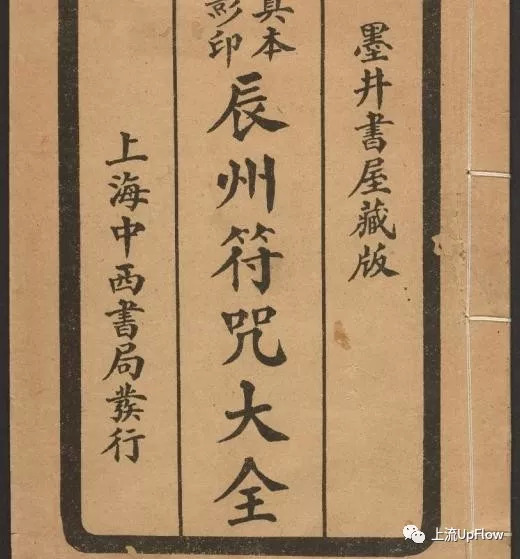 墨井書屋藏版
真本
影印
辰州符咒大全
上海中西書局發行
上流UpFlow